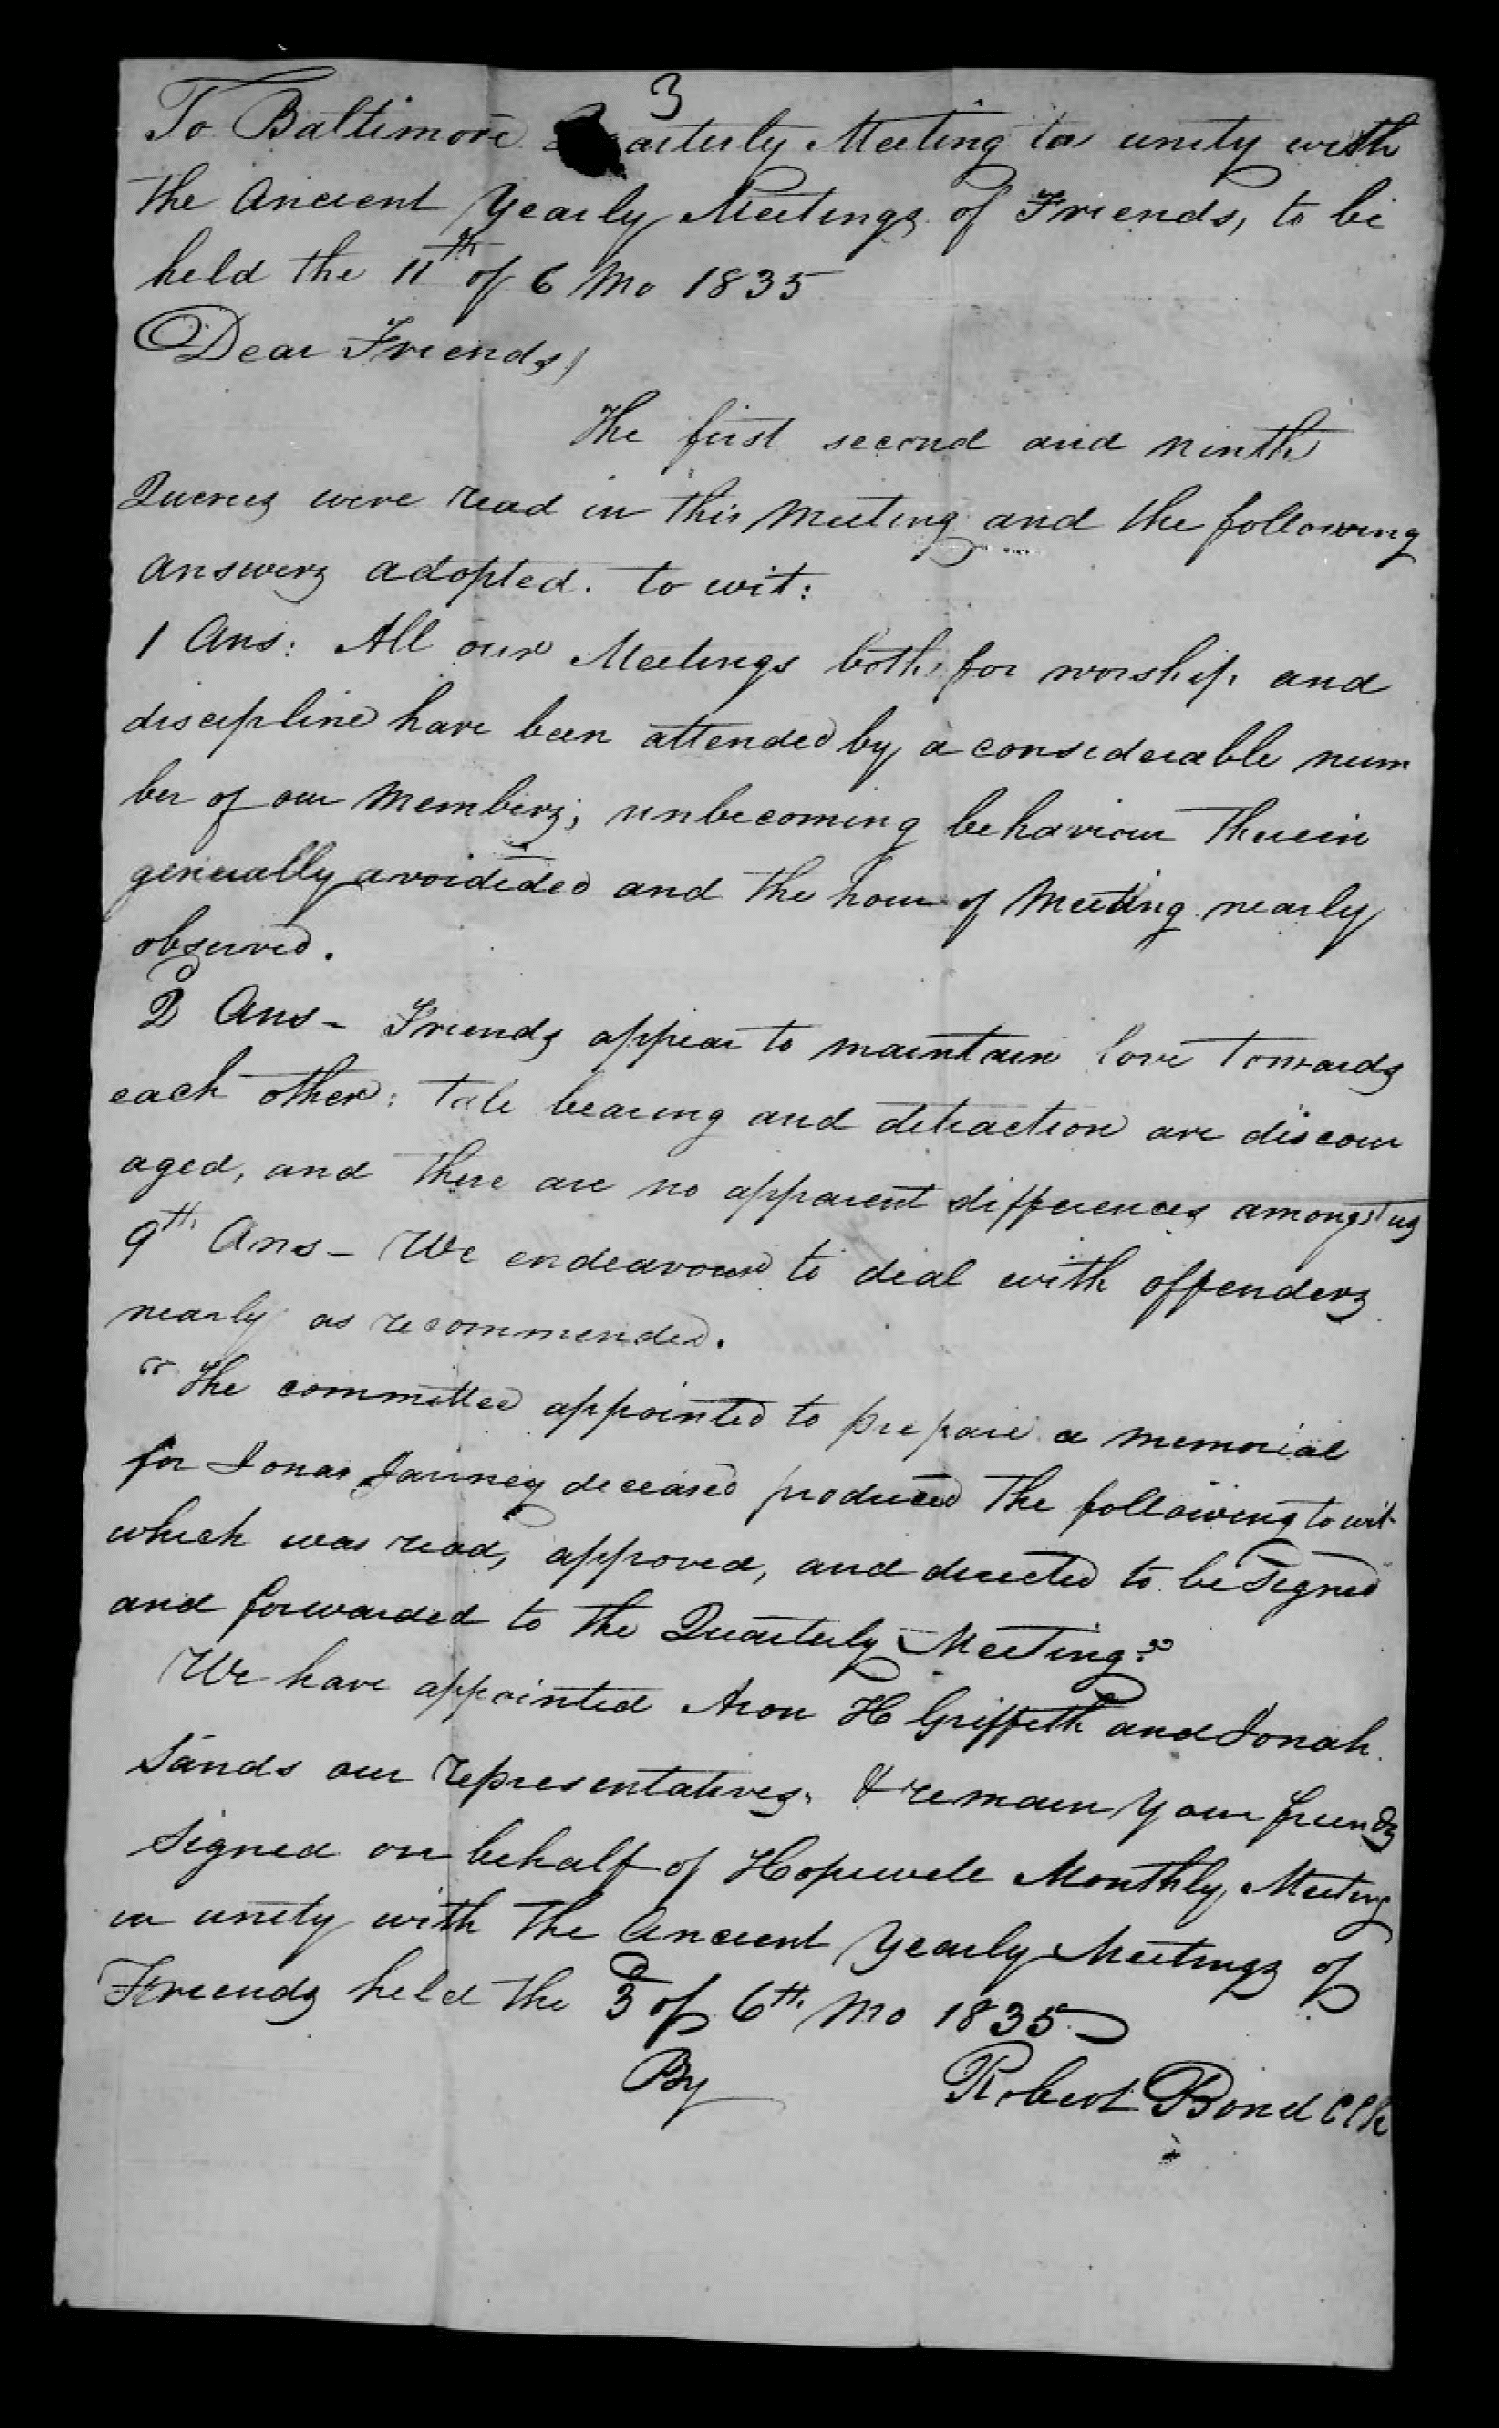 3
To Baltimore Quarterly Meeting in unity with
the Ancient Yearly Meetings of Friends, to be
held the 11th of 6 Mo 1835
Dear Friends,
The first second and ninth
Queries were read in this Meeting and the following
answers adopted. to wit:
1 Ans: All our Meetings both for worship and
discipline have been attended by a considerable num
ber of our Members; unbecoming behaviour therein
generally avoideded and the hour of Meeting nearly
observed.
2d Ans - Friends appear to maintain love towards
each other: tale bearing and detraction are discour
aged, and there are no apparent differences amongst us
9th Ans - We endeavour to deal with offenders
nearly as recommended.
"The committee appointed to prepare a memorial
for Jonas Janney deceased produced the following to wit
which was read, approved, and directed to be signed
and forwarded to the Quarterly Meeting."
We have appointed Aron H Griffeth and Jonah
Sands our representatives. & remain your friends
Signed on behalf of Hopewell Monthly Meeting
in unity with the Ancient Yearly Meetings of
Friends held the 3d of 6th Mo 1835
By Robert Bond Clk